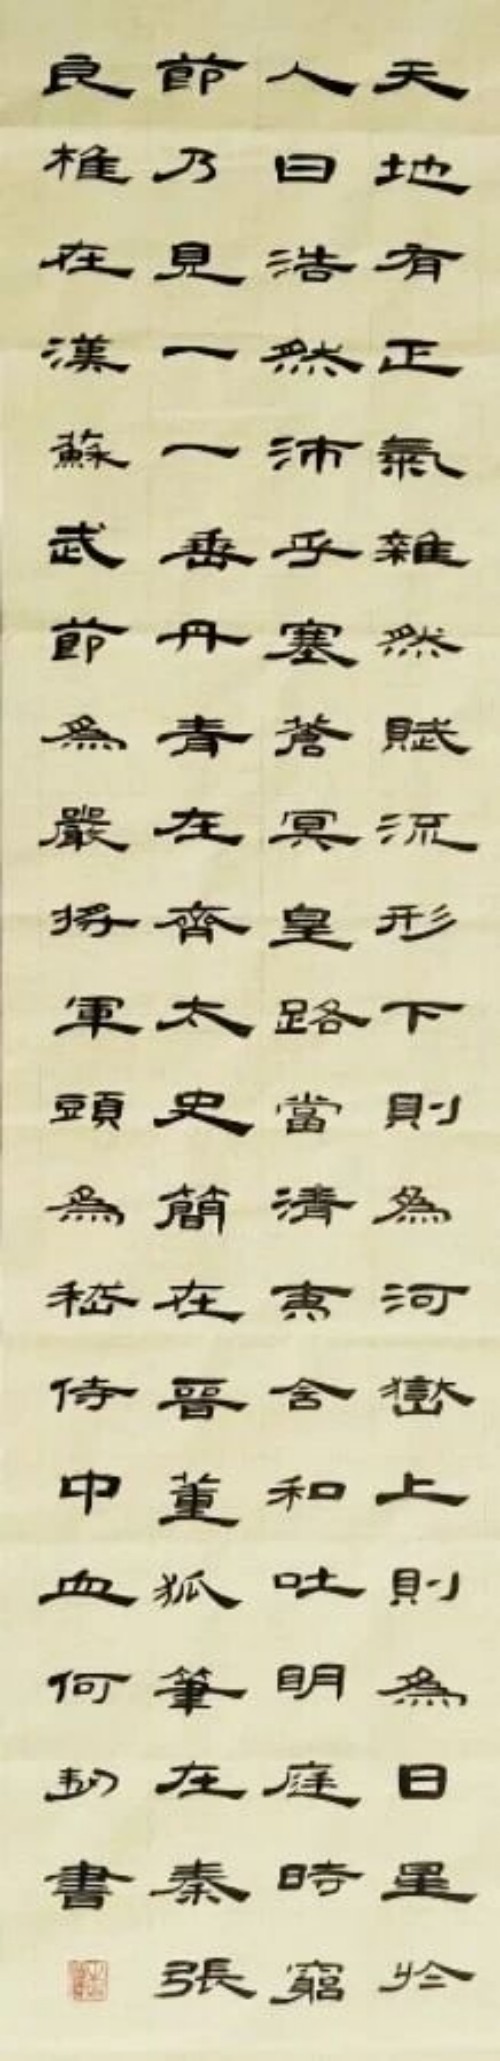 天地有正氣雜然賦流形下則為河嶽上則為日星於
人曰浩然沛乎塞蒼冥皇路當清夷含和吐明庭時窮
節乃見一一垂丹青在齊太史簡在晉董狐筆在秦張
良椎在漢蘇武節為嚴將軍頭為嵇侍中血何書